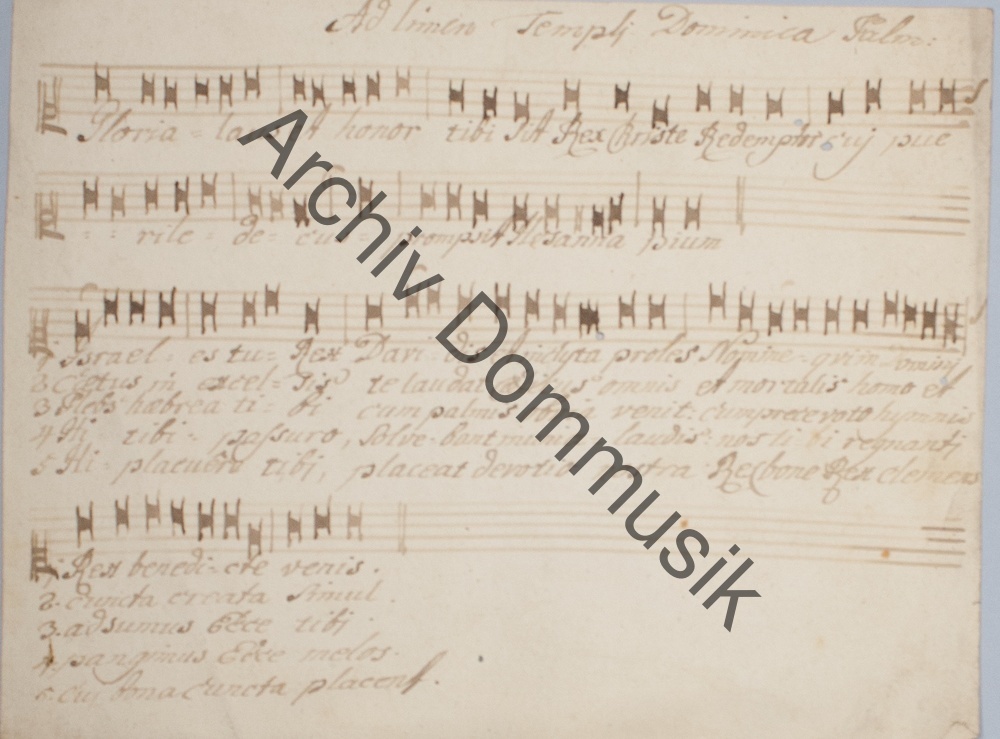 Ad limen Templj Dominica Palm:
Gloria = laus et honor tibi sit Rex Christe Redemptor cuj pue
rile = de = cus = prompsit Hosanna pium
1 Israel = es tu = Rex Davi = dis inclyta proles Nomine = qui in
2 Cœtus in excel = sis te laudat omnis et mortalis homo et
3 Plebs hæbrea ti = bi cum palmis obvia venit: cum prece voto hymnis
4 Hi tibi = passuro, Solve = bant munia laudis: nos ti bi regnantj
5 Hi = placuêre tibj, placeat devotio nostra Rex bone Rex clemens
1. Rex benedi = cte venis.
2. cuncta creata simul.
3. adsumus Ecce tibj
4. pangimus Ecce melos.
5. cuj bona cuncta placent.
Archiv Dommusik